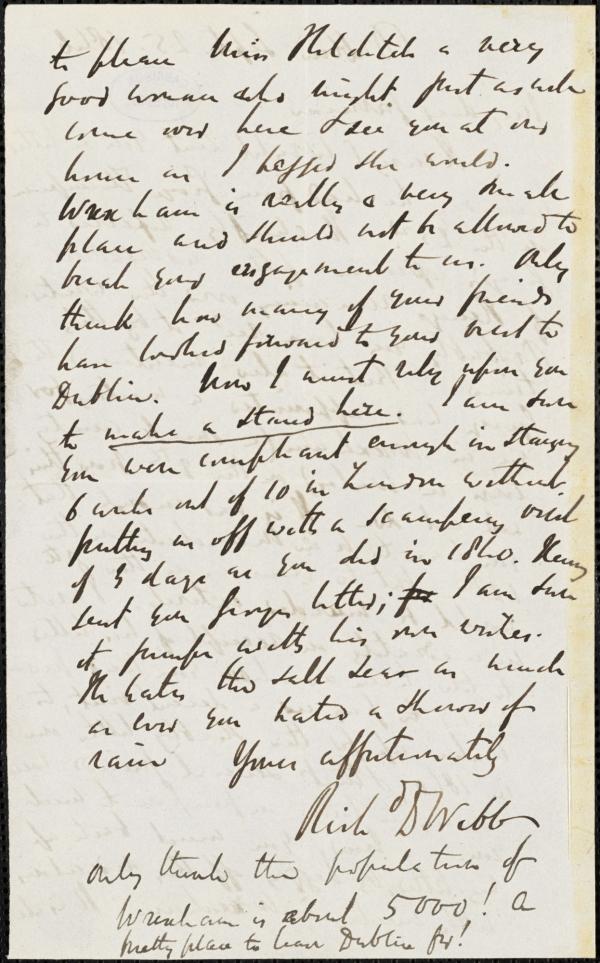 to please Miss Hilditch a very
good woman who might just as well
come over here & see you at our
house as I begged she would.
Wrexham is really a very small
place and should not be allowed to
break your engagement to us. Only
think how many of your friends
have looked forward to your visit to
Dublin. Now I must rely upon you
to make a stand here. I am sure
you were compliant enough in staying
6 weeks out of 10 in London without
putting us off with a scampering visit
of 3 days as you did in 1840. Henry
sent you George's letter; for I am sure
it jumps with his own wishes.
He hates the salt seas as much
as ever you hated a shower of
rain Yours affectionately
Richd D Webb
Only think the population of
Wrexham is about 5000! A
pretty place to leave Dublin for!